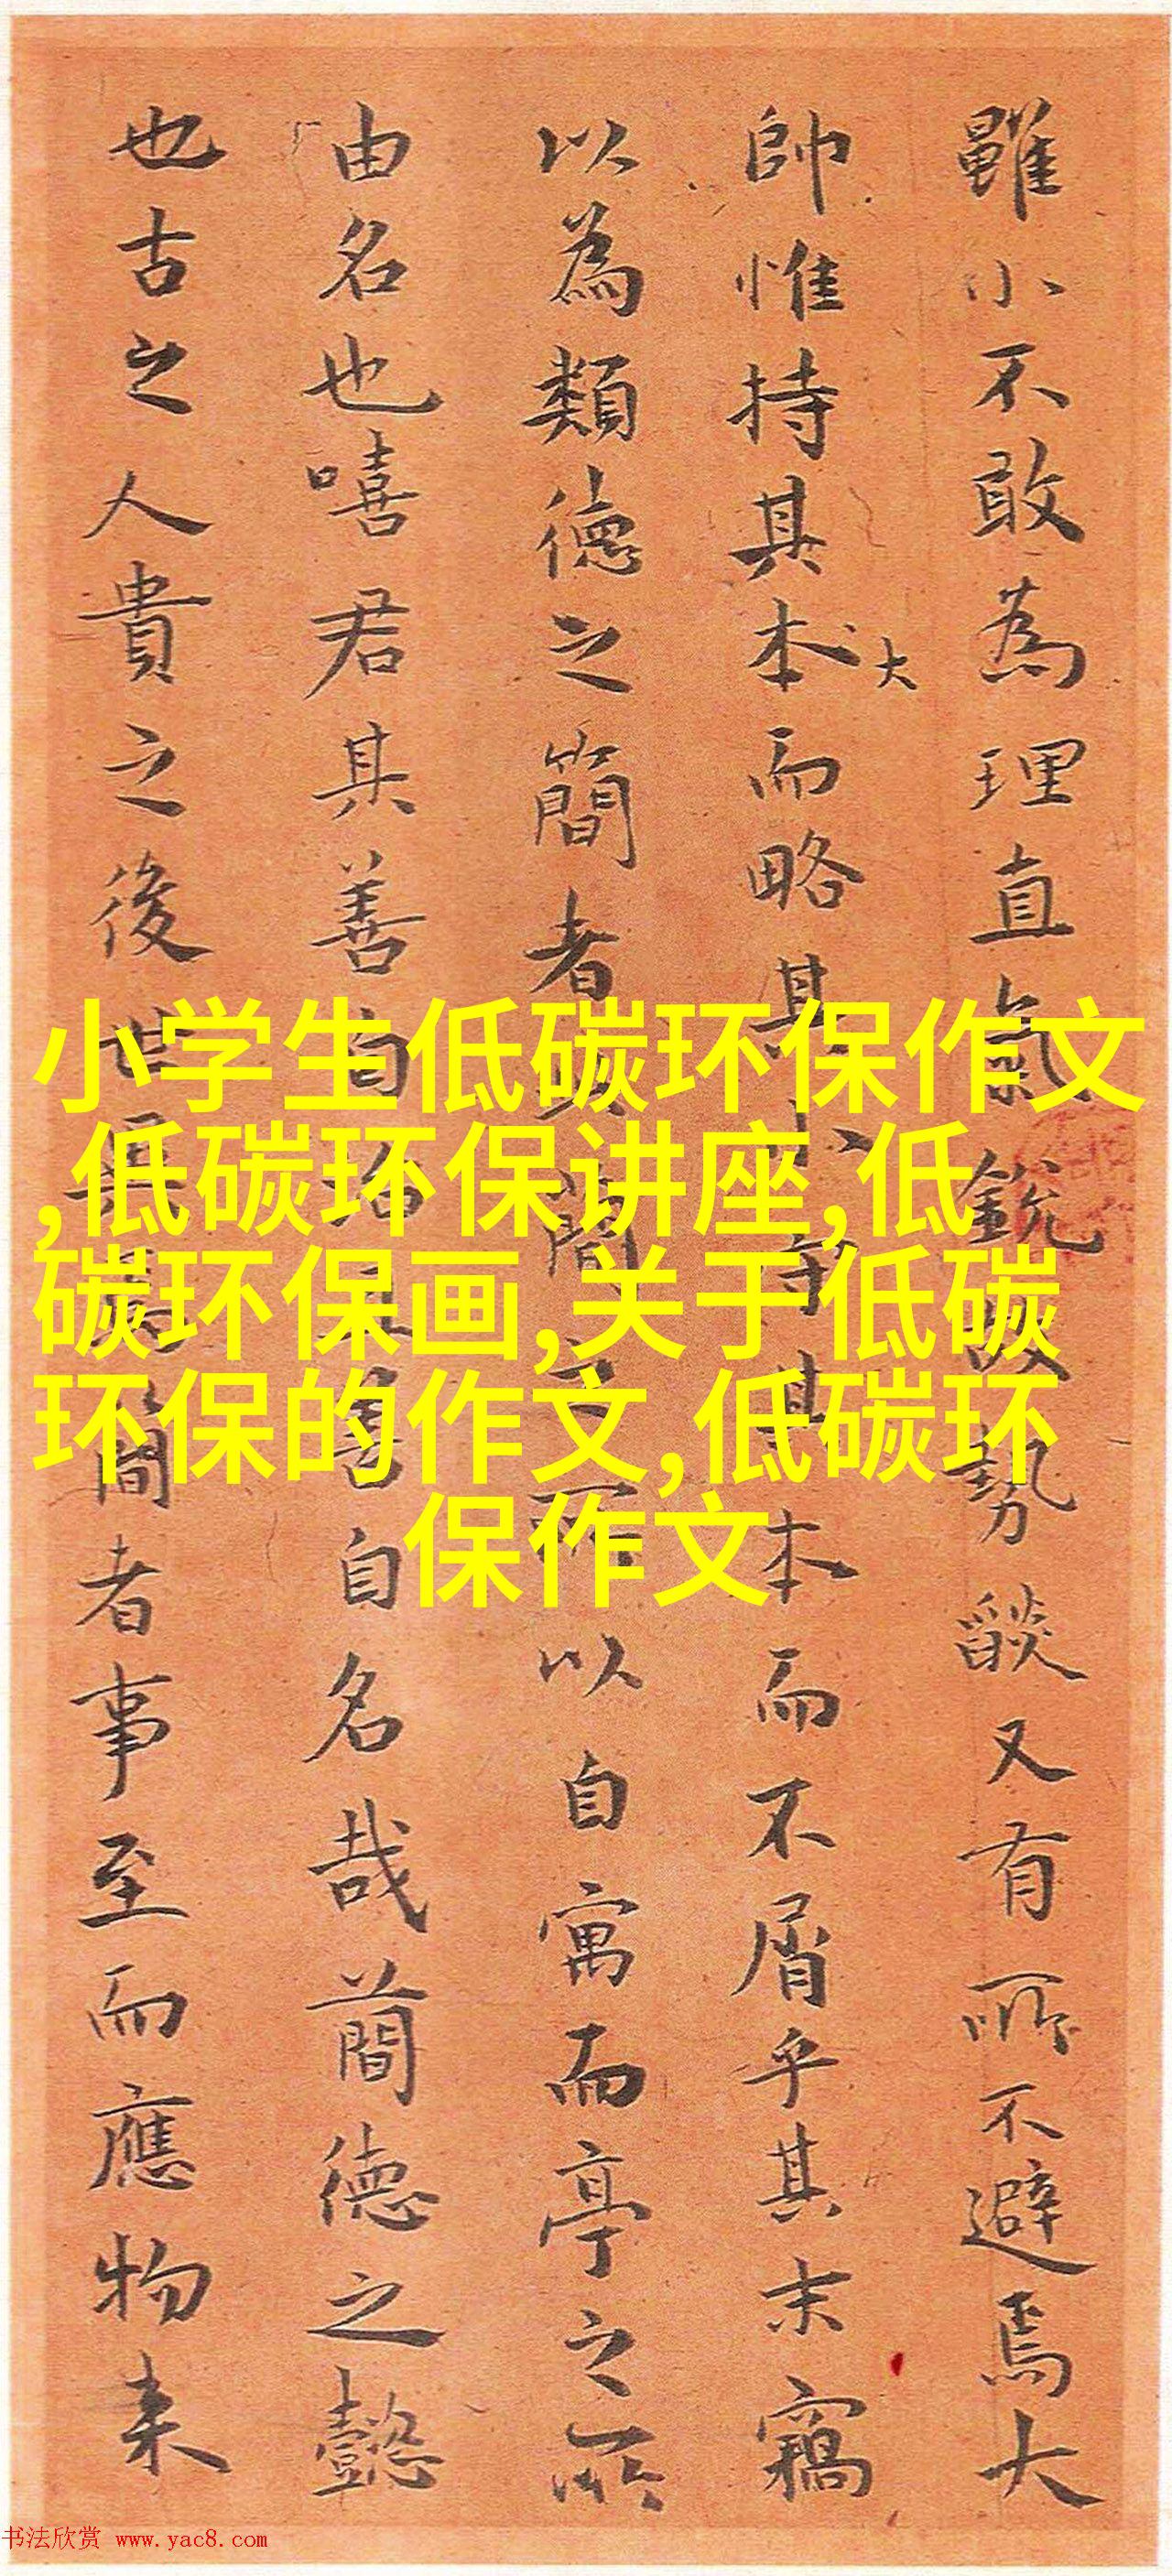 雖小不敢為理直氣銳
勢燄又有所不避焉大
帥惟持其本而略其
大
其本而不屑乎其末竊
以為類德之簡者
以自寓而亭之所
由名也嘻君其善自
善自名哉蕳德之懿
也古之人貴之後世
簡者事至而應物来
小学生低碳环保作文
,低碳环保讲座,低
碳环保画,关于低碳
环保的作文,低碳环
保作文
书法欣赏 www.yac8.com